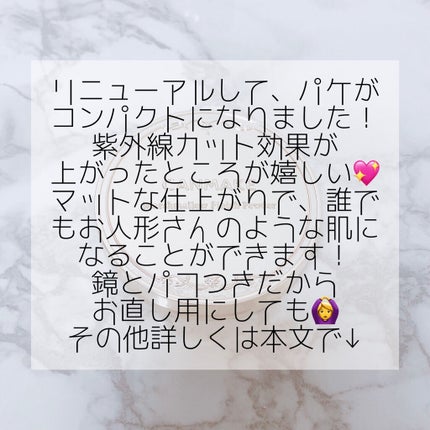 リニューアルして、パケが
コンパクトになりました！
紫外線カット効果が
上がったところが嬉しい💖
マットな仕上がりで、誰で
もお人形さんのような肌に
なることができます！
鏡とパフつきだから
お直し用にしても🙆‍♀️
その他詳しくは本文で↓